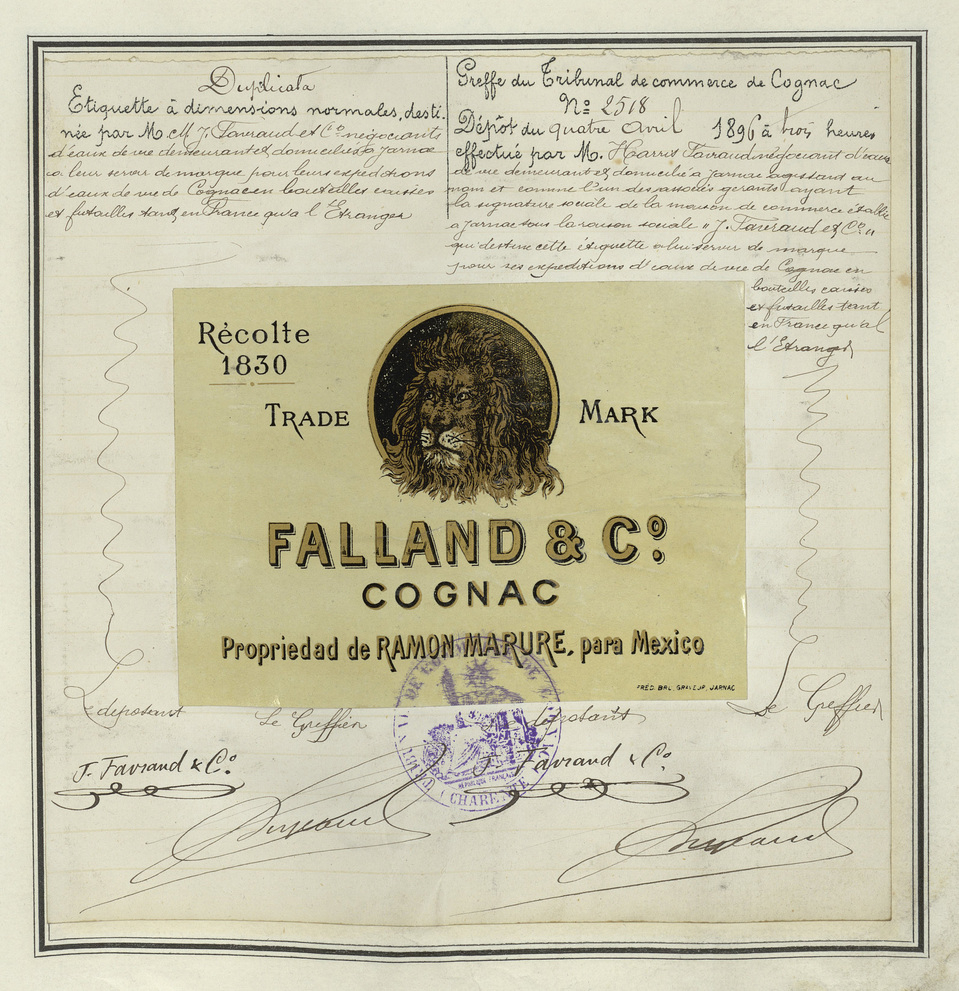 Duplicata
Etiquette à dimensions normales, desti-
née par M. M J. Favraud et Cº négociants
d'eaux de vie demeurant et domiciliés à Jarnac
à leur servir de marque pour leurs expéditions
d'eaux de vie de Cognac en bouteilles caisses
et futailles tant en France qu'à l'Etranger
Greffe du Tribunal de commerce de Cognac
Nº 2518
Dépôt du quatre Avril 1896 à trois heures
effectué par M. Harris Favraud négociant d'eaux
de vie demeurant et domicilié à Jarnac agissant au
nom et comme l'un des associés gerants ayant
la signature sociale de la maison de commerce établie
à Jarnac sous la raison sociale "J. Favraud et Cº"
qui destine cette étiquette à lui servir de marque
pour ses expéditions d'eaux de vie de Cognac en
bouteilles caisses
et futailles tant
en France qu'à
l'Etranger
Récolte
1830
TRADE MARK
FALLAND & Cº
COGNAC
Propriedad de RAMON MARURE, para Mexico
FRED. BRL, GRAVEUR, JARNAC
Le deposant Le Greffier Le deposant Le Greffier
J. Favraud & Cº J. Favraud & Cº
TRIBUNAL DE COMMERCE DE COGNAC
REPUBLIQUE FRANÇAISE
CHARENTE